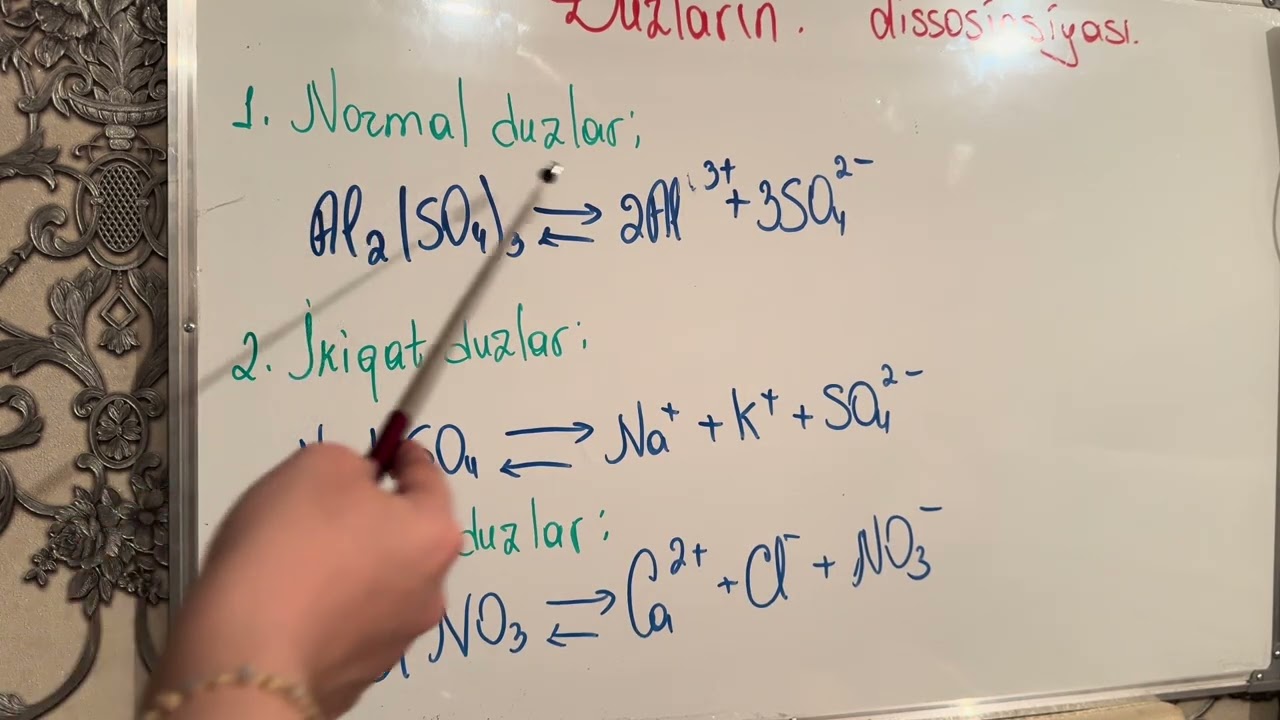 Duzların. dissosiasiyası.
1. Normal duzlar;
Al₂(SO₄)₃ ⇌ 2Al³⁺ + 3SO₄²⁻
2. İkiqat duzlar:
SO₄ ⇌ Na⁺ + K⁺ + SO₄²⁻
duzlar:
NO₃ ⇌ Ca²⁺ + Cl⁻ + NO₃⁻